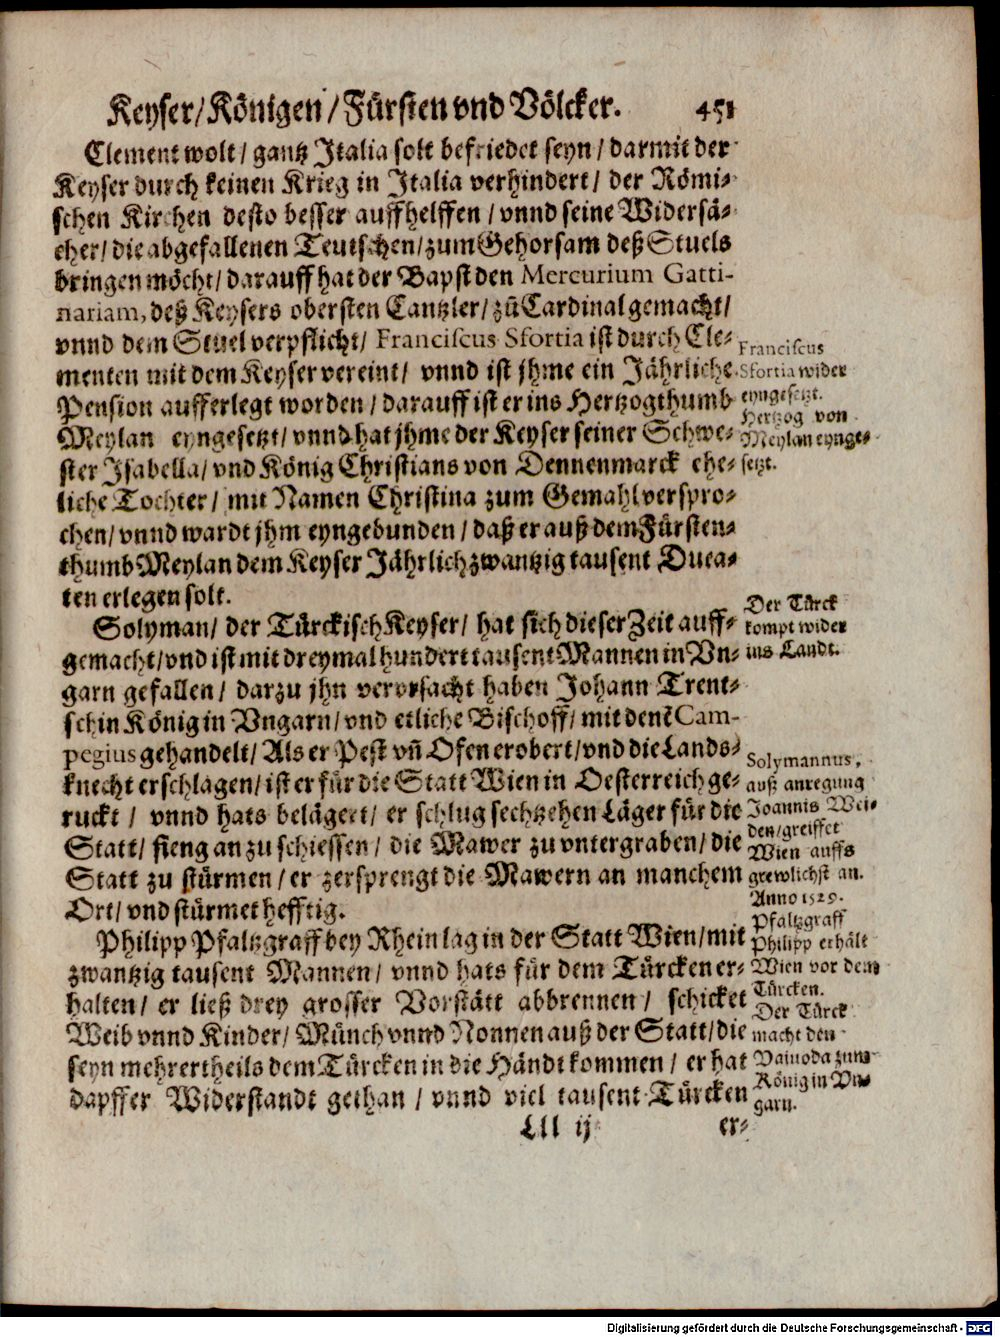 Keyser/ Königen / Fürsten vnd Völcker. 451
Clement wolt / gantz Italia solt befriedet seyn / darmit der
Keyser durch keinen Krieg in Italia verhindert / der Römi-
schen Kirchen desto besser auffhelffen / vnnd seine Widersä-
cher / die abgefallenen Teutschen / zum Gehorsam deß Stuels
bringen möcht / darauff hat der Bapst den Mercurium Gatti-
nariam, deß Keysers obersten Cantzler / zů Cardinal gemacht /
vnnd dem Stuel verpflicht / Franciscus Sfortia ist durch Cle-
menten mit dem Keyser vereint / vnnd ist jhme ein Jährliche
Pension aufferlegt worden / darauff ist er ins Hertzogthumb
Meylan eyngesetzt / vnnd hat jhme der Keyser seiner Schwe-
ster Isabella / vnd König Christians von Dennenmarck ehe-
liche Tochter / mit Namen Christina zum Gemahl verspro-
chen / vnnd wardt jhm eyngebunden / daß er auß dem Fürsten-
thumb Meylan dem Keyser Jährlich zwantzig tausent Duca-
ten erlegen solt.
Franciscus
Sfortia wider
eyngesetzt.
Hertzog von
Meylan eynge-
setzt.
Solyman / der Türckisch Keyser / hat sich dieser Zeit auff-
gemacht / vnd ist mit dreymal hundert tausent Mannen in Vn-
garn gefallen / darzu jhn vervrsacht haben Johann Trent-
schin König in Vngarn / vnd etliche Bischoff / mit denē Cam-
pegius gehandelt / Als er Pest vñ Ofen erobert / vnd die Lands-
knecht erschlagen / ist er für die Statt Wien in Oesterreich ge-
ruckt / vnnd hats belägert / er schlug sechtzehen Läger für die
Statt / fieng an zu schiessen / die Mawer zu vntergraben / die
Statt zu stürmen / er zersprengt die Mawern an manchem
Ort / vnd stürmet hefftig.
Der Türck
kompt wider
ins Landt.
Solymannus,
auß anregung
Joannis Wei-
den / greiffet
Wien auffs
grewlichst an.
Anno 1529.
Philipp Pfaltzgraff bey Rhein lag in der Statt Wien / mit
zwantzig tausent Mannen / vnnd hats für dem Türcken er-
halten / er ließ drey grosser Vorstätt abbrennen / schicket
Weib vnnd Kinder / Münch vnnd Nonnen auß der Statt / die
seyn mehrertheils dem Türcken in die Händt kommen / er hat
dapffer Widerstandt gethan / vnnd viel tausent Türcken
Pfaltzgraff
Philipp erhält
Wien vor dem
Türcken.
Der Türck
macht den
Vaivoda zum
König in Vn-
garn.
Lll ij er-
Digitalisierung gefördert durch die Deutsche Forschungsgemeinschaft - DFG